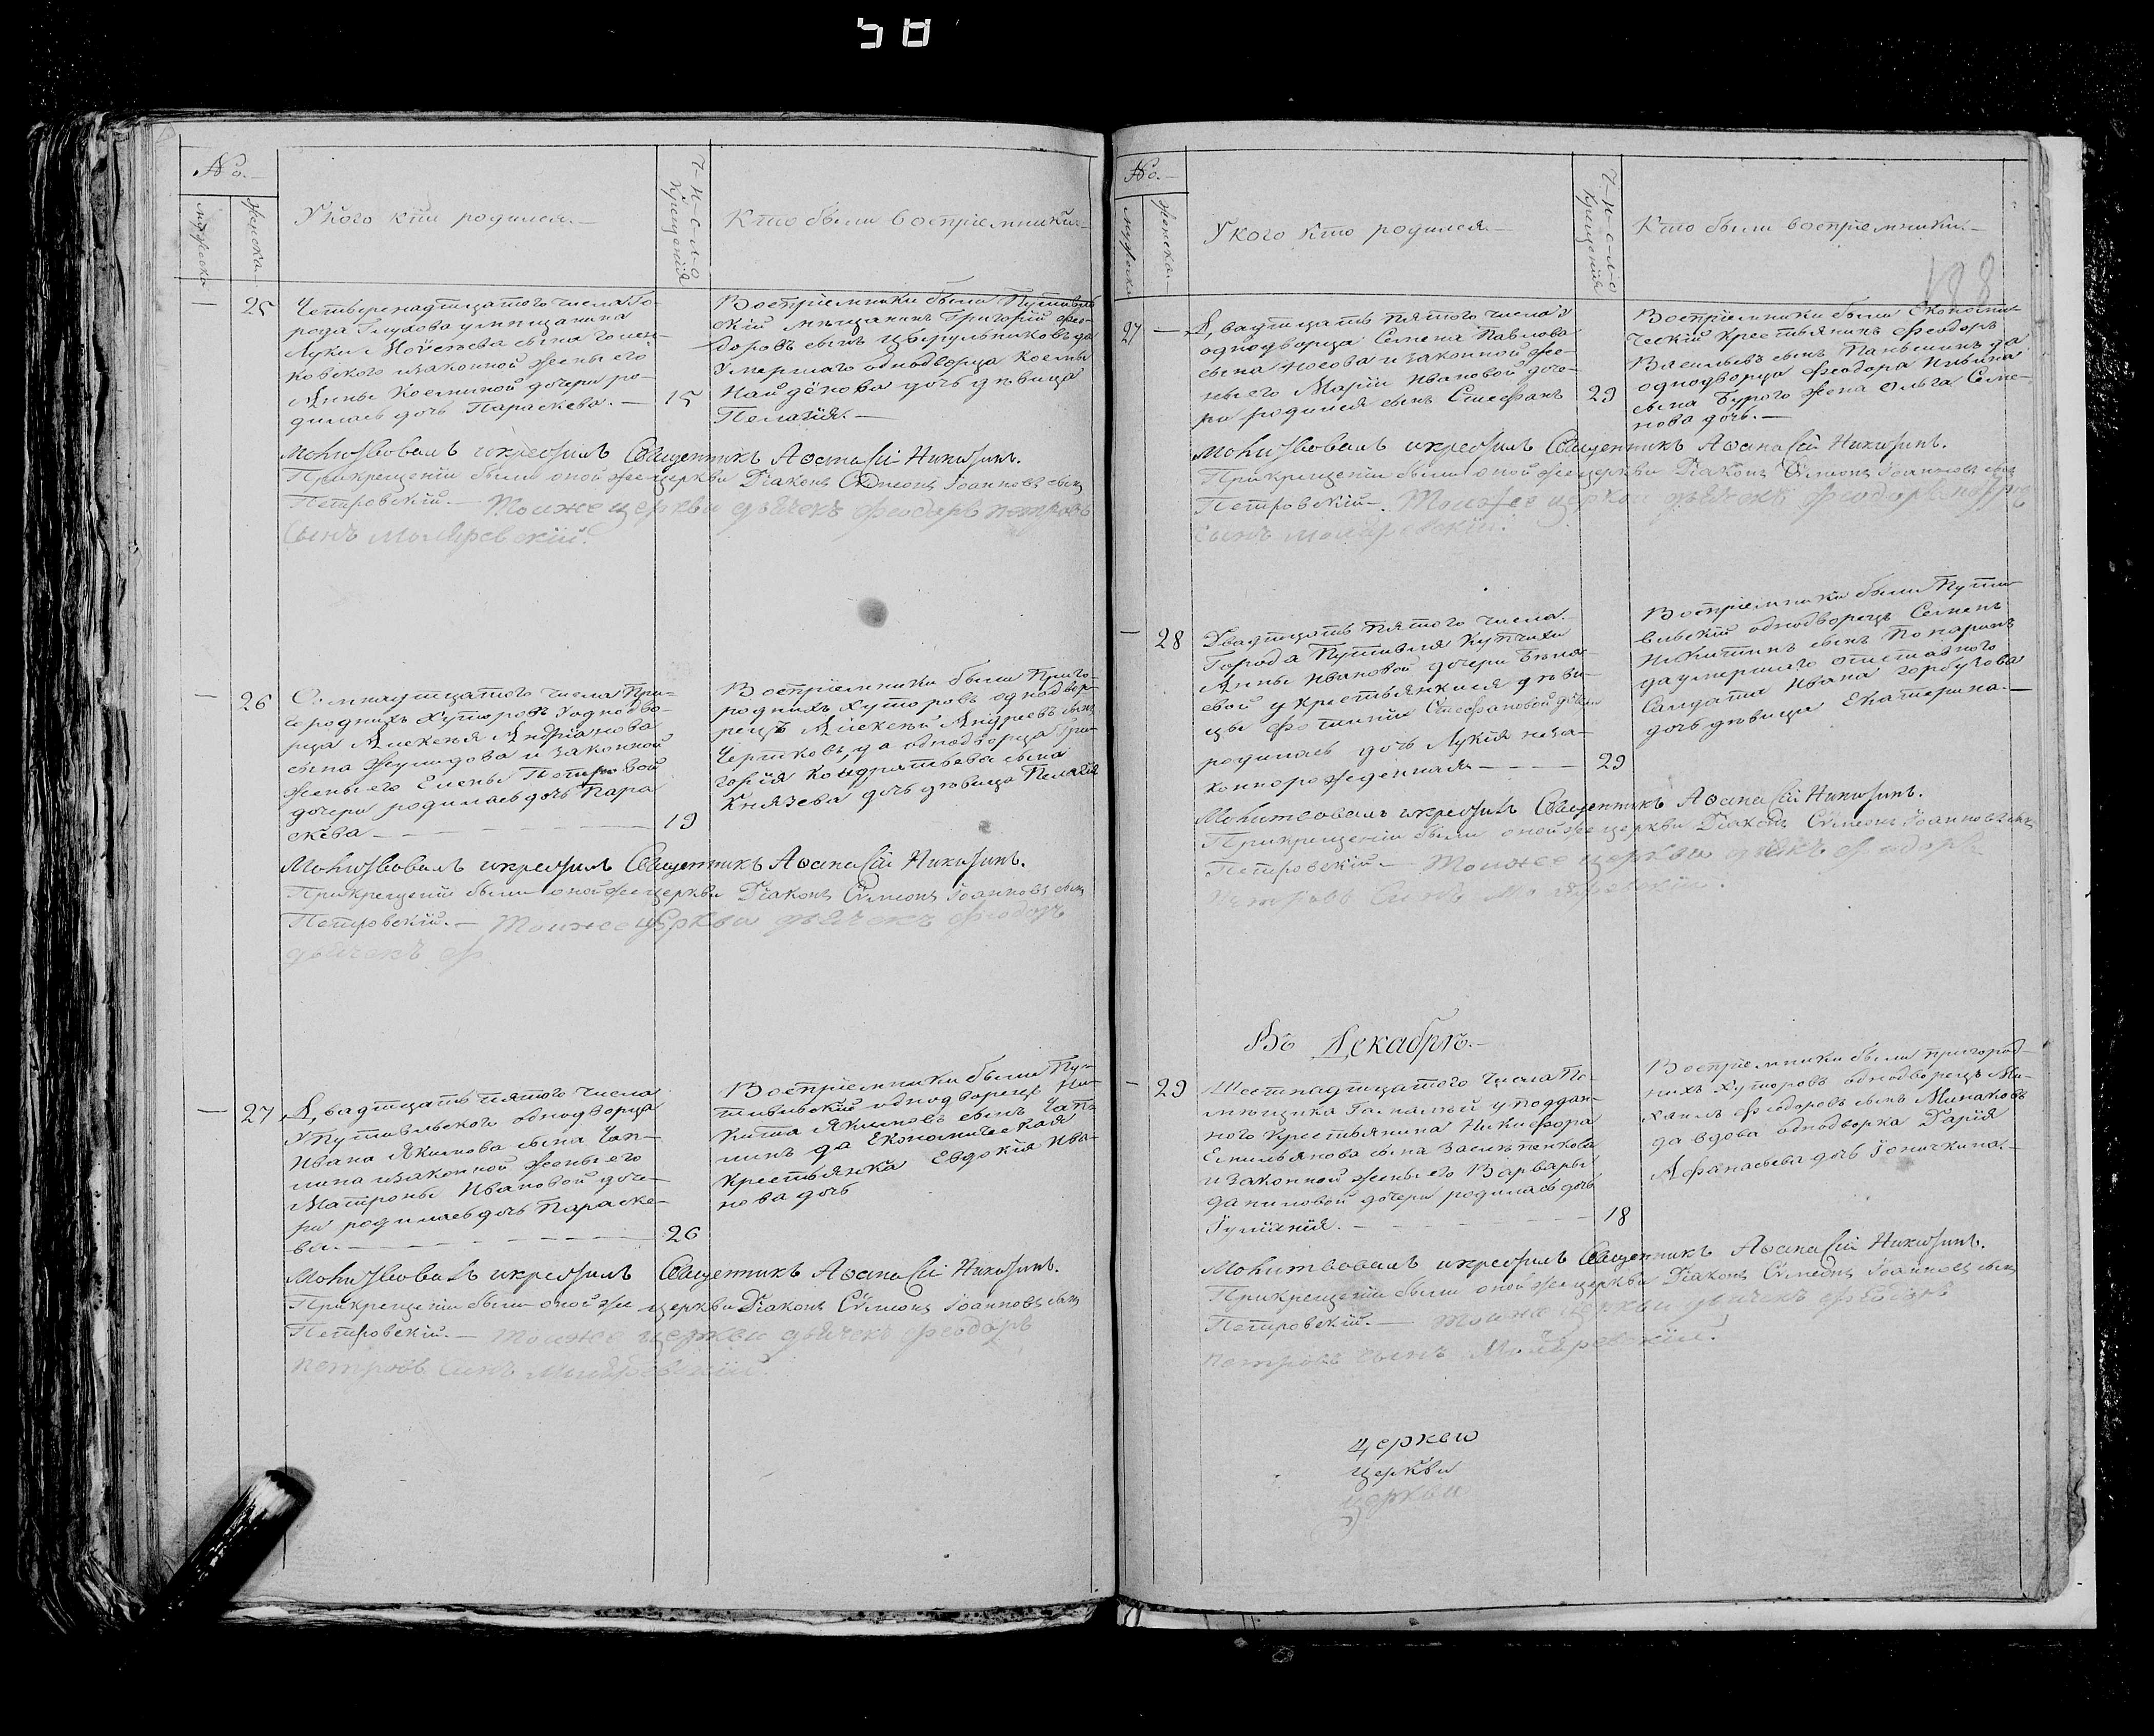 58
No.
мужеска
женска
У кого кто родился.
Ч-и-с-л-о
Крещенія
Кто были воспріемники
25
Четыренадцатого числа Го-
рода Глухова у мещанина
Луки
ковского и законной жены его
Анны Косминой дочери ро-
дилась дочь Параскева.
15
Воспріемники были Путивль
скій мещанинъ Григорій Фео-
доровъ сынъ Цырульниковъ да
Умершаго однодворца Космы
Найдёнова дочь девица
Пелагія.
Молитвовалъ и крестилъ Священникъ Аѳанасій Никитинъ.
При крещеніи были оной же церкви Діаконъ Сѵмеонъ Іоанновъ сынъ
Петровскій. Тоиже церкви дьячекъ Феодоръ петровъ
сынъ
26
Семнадцатого числа При-
городнихъ Хуторовъ У однодво-
рца Алексея Андріанова
сына и законной
жены его Елены Петровой
дочери родилась дочь Пара
скева
19
Воспріемники были Приго-
роднихъ Хуторовъ однодво-
рецъ Алексей Андреевъ сынъ
Чертковъ, да однодворца Гри-
горія Кондратьева сына
Князева дочь девица Пелагія
Молитвовалъ и крестилъ Священникъ Аѳанасій Никитинъ.
При крещеніи были оной же церкви Діаконъ Сѵмеонъ Іоанновъ сынъ
Петровскій. Тоиже церкви дьячекъ Феодоръ
дьячекъ Ф
27
Двадцать пятого числа
У Путивльского однодворца
Ивана Якимова сына Чап-
лина и законной жены его
Матроны Ивановой доче-
ри родилась дочь Параске-
ва.
26
Воспріемники были Пу-
тивльскій однодворецъ Ни-
кита Якимовъ сынъ Чап-
линъ да Економическая
Крестьянка Евдокія Ива-
нова дочь
Молитвовалъ и крестилъ Священникъ Аѳанасій Никитинъ.
При крещеніи были оной же церкви Діаконъ Сѵмеонъ Іоанновъ сынъ
Петровскій. Тоиже церкви дьячекъ Феодоръ
петровъ синъ
No.
мужеска
женска.
У кого кто родился.
Ч-и-с-л-о
Крещенія
Кто были воспріемники.
27
Двадцать пятого числа у
однодворца Семена Павлова
сына Носова и законной же-
ны его Маріи Ивановой доче-
ри родился сынъ Стефанъ
29
Воспріемники были Економи-
ческій Крестьянинъ Феодоръ
Васильевъ сынъ Паньшинъ да
однодворца Феодора Ильина
сына Бурого жена Ольга Семе-
нова дочь.
Молитвовалъ и крестилъ Священникъ Аѳанасій Никитинъ.
При крещеніи были оной же церкви Діаконъ Сѵмеонъ Іоанновъ сынъ
Петровскій. Тоиже церкви дьячекъ Феодоръ
сынъ
28
Двадцать пятого числа
Города Путивля Купчихи
Анны Ивановой дочери
евой у крестьянки ея деви-
цы Фотиніи Стефановой дочери
родилась дочь Лукія неза-
коннорожденная
29
Воспріемники были Пути-
вльскій однодворецъ Семенъ
Никитинъ сынъ
да умершаго отставного
Салдата Ивана Горбунова
дочь девица Екатерина.
Молитвовалъ и крестилъ Священникъ Аѳанасій Никитинъ.
При крещеніи были оной же церкви Діаконъ Сѵмеонъ Іоанновъ сынъ
Петровскій. Тоиже церкви дьячекъ Феодоръ
петровъ синъ
Въ Декабре.
29
Шестнадцатого числа По-
мещика у поддан-
ного Крестьянина Никифора
Емильянова сына
и законной жены его Варвары
Даниловой дочери родилась дочь
Іуліянія.
18
Воспріемники были пригород-
нихъ Хуторовъ однодворецъ Ми-
хаилъ Феодоровъ сынъ Минаковъ
да вдова однодворка Дарія
Афанасьева дочь
Молитвовалъ и крестилъ Священникъ Аѳанасій Никитинъ.
При крещеніи были оной же церкви Діаконъ Сѵмеонъ Іоанновъ сынъ
Петровскій. Тоиже церкви дьячекъ Феодоръ
петровъ сынъ
церкви
церкви
церкви